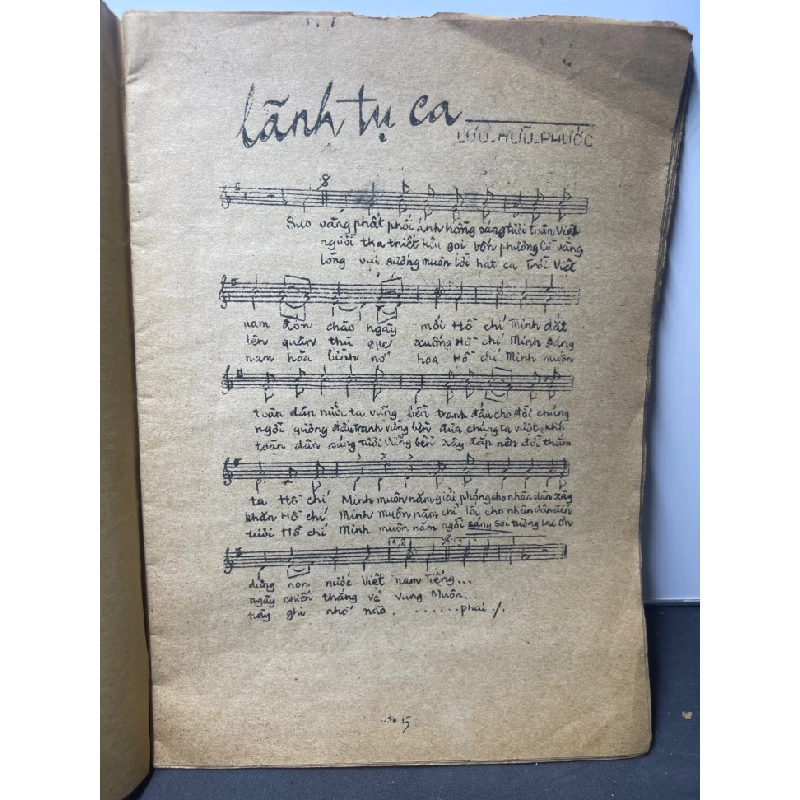 lãnh tụ ca
LƯU-HỮU-PHƯỚC
Sao vàng phất phới ánh hồng sáng tươi toàn Việt
người tha thiết kêu gọi bốn phương cờ vàng
lòng vui sướng muôn lời hát ca trời Việt
nam đón chào ngày mới Hồ chí Minh dắt
lên quân thù gục xuống Hồ chí Minh sáng
nam hòa bình nở hoa Hồ chí Minh muôn
toàn dân nước ta vững bền tranh đấu cho đời chúng
ngời giòng đấu tranh vững bền đưa chúng ta vượt khó
toàn dân sáng tươi vững bền xây đắp nên đời thắm
ta Hồ chí Minh muôn năm giải phóng cho nhân dân xây
khăn Hồ chí Minh muôn năm chỉ lối cho nhân dân
tươi Hồ chí Minh muôn năm ngời sáng soi đường
dựng non nước Việt nam Tiếng...
ngày chiến thắng vẻ vang Muôn...
nầy ghi nhớ nào. ......phai ./.
5